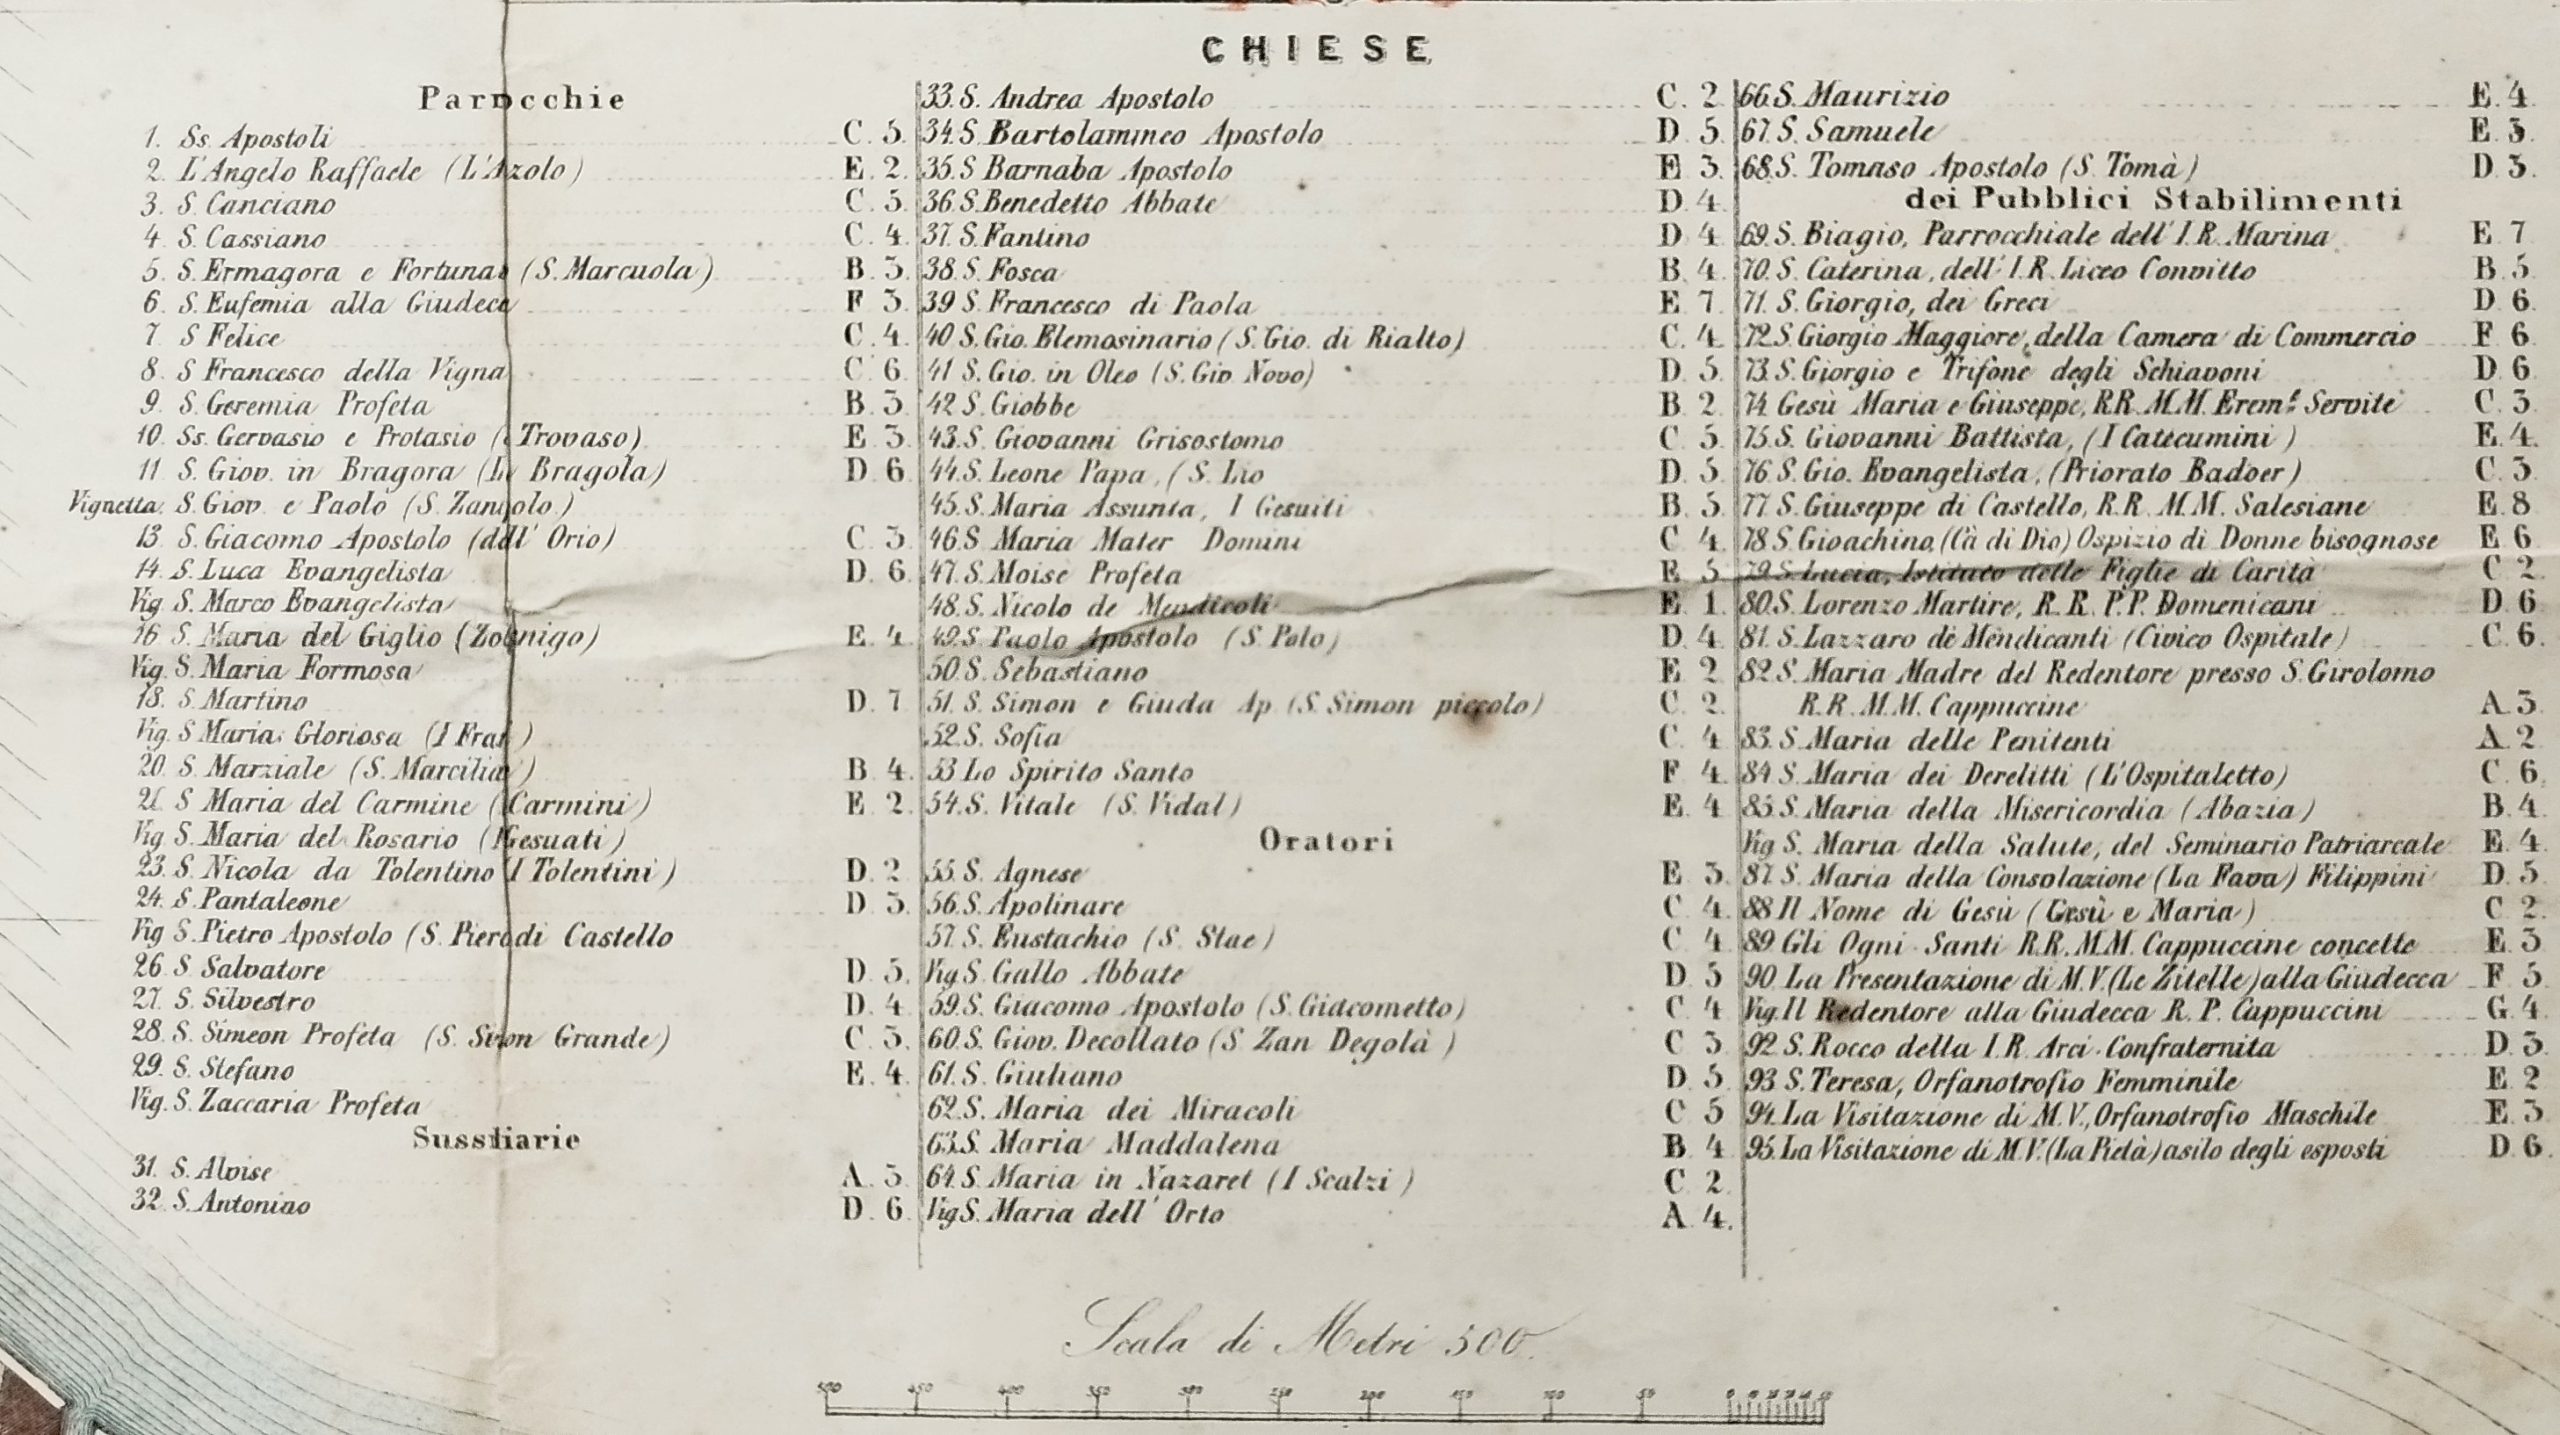 CHIESE
Parocchie
1. Ss. Apostoli C. 5.
2. L'Angelo Raffaele (L'Azolo) E. 2.
3. S. Canciano C. 5.
4. S. Cassiano C. 4.
5. S. Ermagora e Fortunato (S. Marcuola) B. 3.
6. S. Eufemia alla Giudeca F. 3.
7. S Felice C. 4.
8. S Francesco della Vigna C. 6.
9. S. Geremia Profeta B. 3.
10. Ss. Gervasio e Protasio (Trovaso) E. 3.
11. S. Giov. in Bragora (La Bragola) D. 6.
Vignetta. S. Giov. e Paolo (S. Zanipolo)
13. S. Giacomo Apostolo (dall' Orio) C. 3.
14. S. Luca Evangelista D. 6.
Vig. S. Marco Evangelista
16 S. Maria del Giglio (Zobenigo) E. 4.
Vig. S. Maria Formosa
18. S. Martino D. 7
Vig. S Maria Gloriosa (I Frari)
20. S. Marziale (S. Marcilian) B. 4.
21. S Maria del Carmine (Carmini) E. 2.
Vig S. Maria del Rosario (I Gesuati)
23. S. Nicola da Tolentino (I Tolentini) D. 2
24. S. Pantaleone D. 3.
Vig S. Pietro Apostolo (S. Piero di Castello
26. S. Salvatore D. 5.
27. S. Silvestro D. 4.
28. S. Simeon Profeta (S. Simon Grande) C. 3.
29. S. Stefano E. 4.
Vig. S. Zaccaria Profeta
Sussdiarie
31. S. Alvise A. 3.
32. S. Antonino D. 6.
33. S. Andrea Apostolo C. 2
34. S. Bartolammeo Apostolo D. 5.
35. S Barnaba Apostolo E 3.
36. S. Benedetto Abbate D. 4.
37. S. Fantino D 4.
38. S. Fosca B. 4.
39 S. Francesco di Paola E 7.
40 S. Gio. Elemosinario (S. Gio. di Rialto) C. 4.
41 S. Gio. in Oleo (S. Gio Novo) D. 5.
42 S. Giobbe B. 2.
43. S. Giovanni Grisostomo C. 5.
44. S. Leone Papa, (S. Lio D. 5.
45. S. Maria Assunta, I Gesuiti B. 5.
46. S Maria Mater Domini C 4.
47. S. Moise Profeta E 5.
48. S. Nicolo de Mendicoli E 1.
49. S. Paolo Apostolo (S. Polo) D. 4.
50. S. Sebastiano E 2.
51. S. Simon e Giuda Ap (S. Simon piccolo) C. 2.
52. S. Sofia C. 4.
53 Lo Spirito Santo F 4.
54. S. Vitale (S. Vidal) E 4
Oratori
55. S. Agnese E 3.
56. S. Apolinare C 4.
57. S. Eustachio (S. Stae) C 4.
Vig S. Gallo Abbate D 5
59. S. Giacomo Apostolo (S. Giacometto) C 4
60. S. Giov. Decollato (S Zan Degolà) C 3
61. S. Giuliano D 5
62. S. Maria dei Miracoli C 5
63. S. Maria Maddalena B 4
64. S. Maria in Nazaret (I Scalzi) C 2.
Vig S. Maria dell' Orto A 4.
66. S. Maurizio E. 4.
67. S. Samuele E. 3.
68. S. Tomaso Apostolo (S. Tomà) D. 3.
dei Pubblici Stabilimenti
69. S. Biagio, Parrocchiale dell' I. R. Marina E 7
70. S. Caterina, dell' I. R. Liceo Convitto B. 5
71. S. Giorgio, dei Greci D 6
72. S. Giorgio Maggiore, della Camera di Commercio F 6.
73. S. Giorgio e Trifone degli Schiavoni D 6
74 Gesù Maria e Giuseppe, R.R. M.M. Erem.e Servite C. 3.
75. S. Giovanni Battista, (I Catecumini) E. 4.
76 S. Gio. Evangelista, (Priorato Badoer) C. 3.
77. S. Giuseppe di Castello, R.R. M.M. Salesiane E. 8
78 S. Gioachino, (Cà di Dio) Ospizio di Donne bisognose E 6
79. S. Lucia, Istituto delle Figlie di Carità C 2.
80. S. Lorenzo Martire, R. R. P.P. Domenicani D. 6
81. S. Lazzaro de Mendicanti (Civico Ospitale) C. 6.
82. S. Maria Madre del Redentore presso S. Girolomo
R.R. M.M. Cappuccine A. 3.
83. S. Maria delle Penitenti A. 2.
84 S. Maria dei Derelitti (L'Ospitaletto) C. 6.
85. S. Maria della Misericordia (Abazia) B. 4.
Vig S. Maria della Salute, del Seminario Patriarcale E. 4.
87. S. Maria della Consolazione (La Fava) Filippini D. 5
88 Il Nome di Gesù (Gesù e Maria) C 2.
89 Gli Ogni Santi R.R. M.M. Cappuccine concette E. 3
90 La Presentazione di M.V. (Le Zitelle) alla Giudecca F 5
Vig. Il Redentore alla Giudecca R. P. Cappuccini G. 4
92 S. Rocco della I. R. Arci-Confraternita D. 3.
93 S. Teresa, Orfanotrofio Femminile E 2
94. La Visitazione di M. V., Orfanotrofio Maschile E. 3
95. La Visitazione di M.V. (La Pietà) asilo degli esposti D 6.
Scala di Metri 500
500 450 400 350 300 250 200 150 100 50 0 10 20 30 40 50